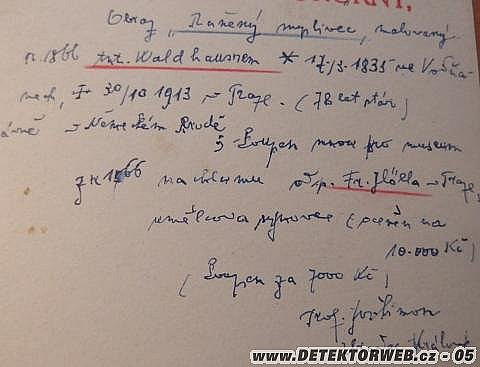 Obraz „Raněný myslivec, malovaný
r. 1866 Ant. Waldhausrem * 17/3 1835 ve Vodňa-
nech, † 30/10 1913 v Praze. (78 let stár)
v Německém Brodě
Koupen mnou pro museum
z r 1866 od p. Fr. v Praze,
umělcova synovce (ceněn na
10.000 Kč)
(Koupen za 7000 Kč)
Prof.
www.DETEKTORWEB.cz - 05